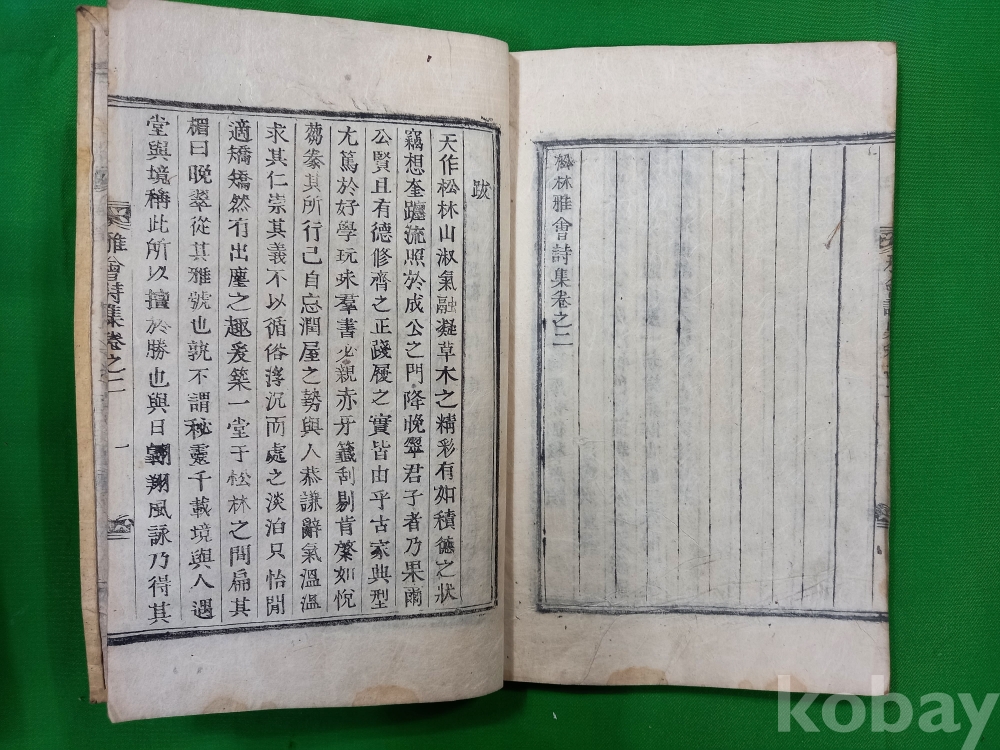 松林雅會詩集卷之二
跋
天作松林山淑氣融凝草木之精彩有如積德之狀
竊想奎躔流照於成公之門降晚翠君子者乃果爾
公賢且有德修齊之正踐履之實皆由乎古家典型
尤篤於好學玩味羣書必親赤牙籤刮剔肯綮如悅
芻豢其所行己自忘潤屋之勢與人恭謙辭氣溫溫
求其仁崇其義不以循俗浮沉而處之淡泊只怡閒
適矯矯然有出塵之趣爰築一堂于松林之間扁其
楣曰晚翠從其雅號也孰不謂秘靈千載境與人遇
堂與境稱此所以擅於勝也與日翱翔風詠乃得其
雅會詩集卷之二
一
kobay